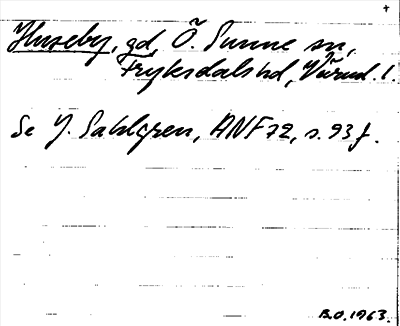 Huseby, gd, Ö. Sunne sn,
Fryksdals hd, Värml. l.
Se J. Sahlgren, ANF 72, s. 93 f.
B.O. 1963.